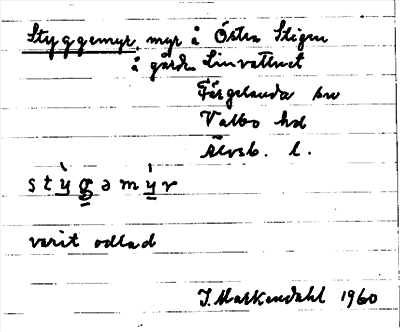 Styggemyr, myr å Östra Stigen
å gården Linvattnet
Färgelanda sn
Valbo hd
Älvsb. l.
stỳgəmỳr
varit odlad
J. Markendahl 1960